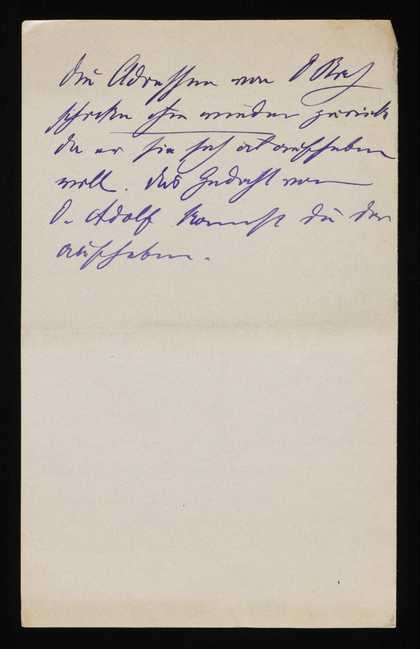 Die Adressen von O
schicke ihm wieder zurück
da er sie sich aufheben
will. Das Gedicht von
O. Adolf kannst du dir
aufheben.